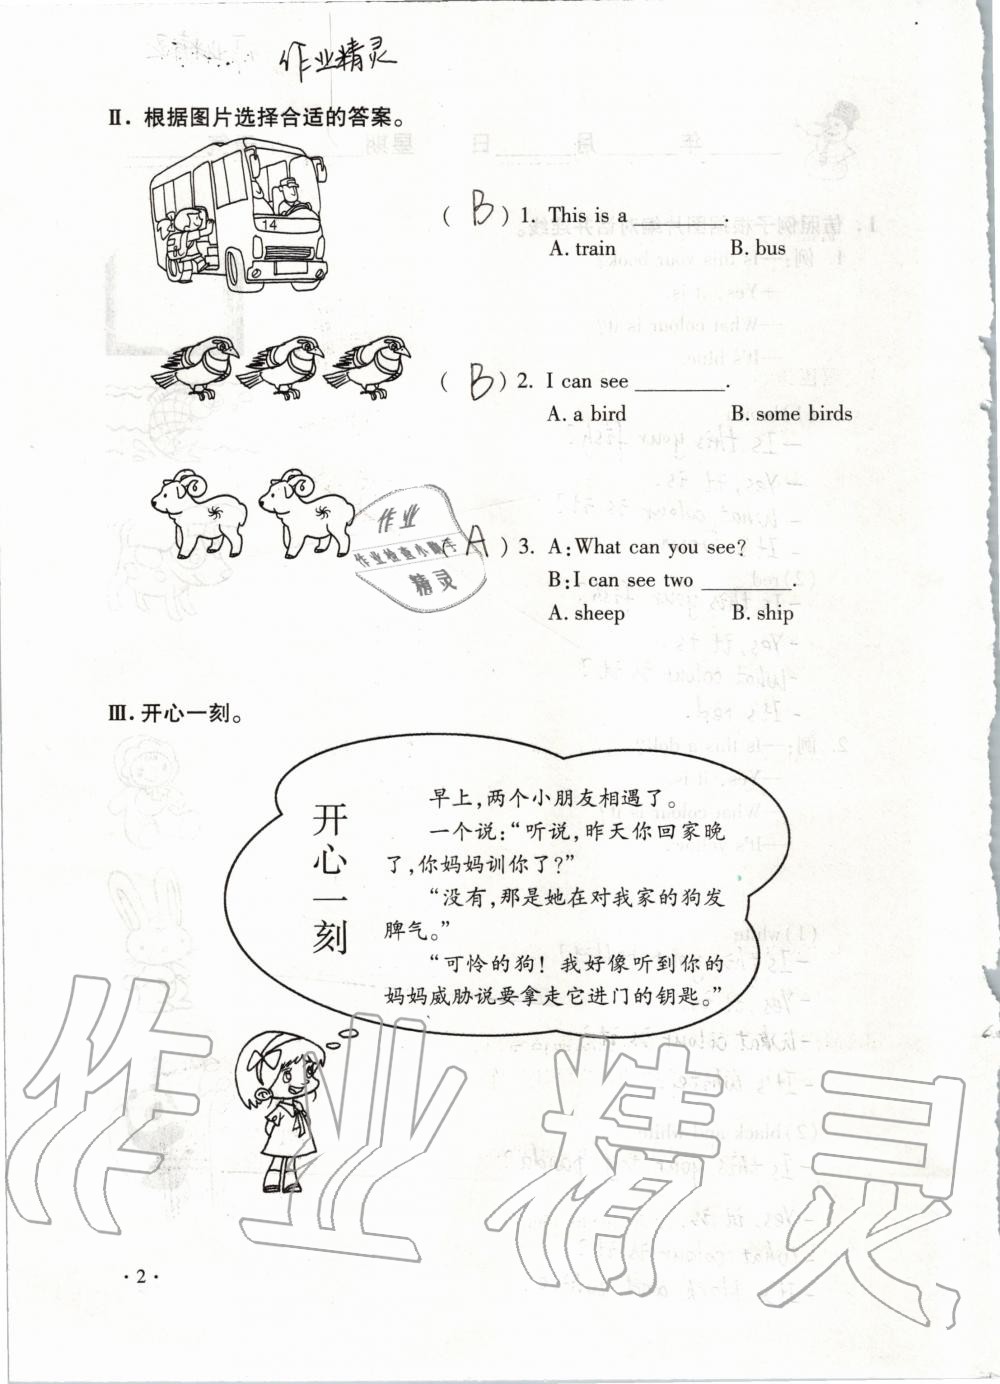 作业精灵
Ⅱ. 根据图片选择合适的答案。
14
( B ) 1. This is a ________.
A. train B. bus
( B ) 2. I can see ________.
A. a bird B. some birds
作业
作业检查小助手
精灵
( A ) 3. A:What can you see?
B:I can see two ________.
A. sheep B. ship
Ⅲ. 开心一刻。
开心一刻
早上,两个小朋友相遇了。
一个说:“听说,昨天你回家晚
了,你妈妈训你了?”
“没有,那是她在对我家的狗发
脾气。”
“可怜的狗！我好像听到你的
妈妈威胁说要拿走它进门的钥匙。”
作业精灵
· 2 ·